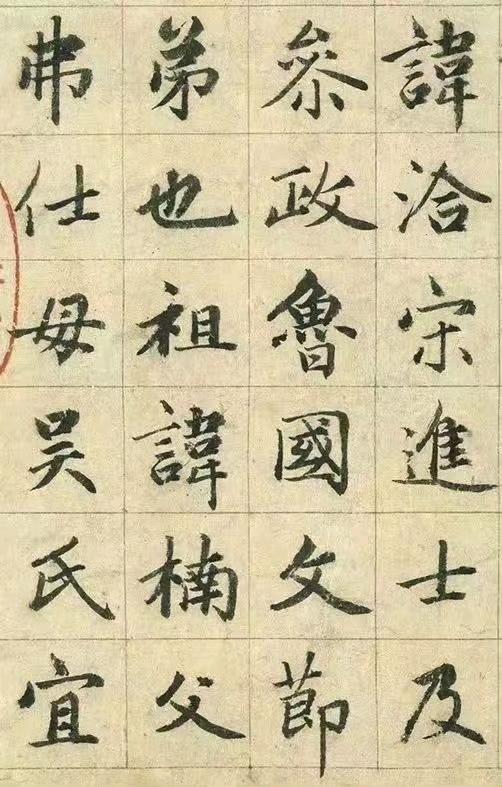 諱洽宋進士及
叅政魯國文節
弟也祖諱楠父
弗仕毋吴氏宜